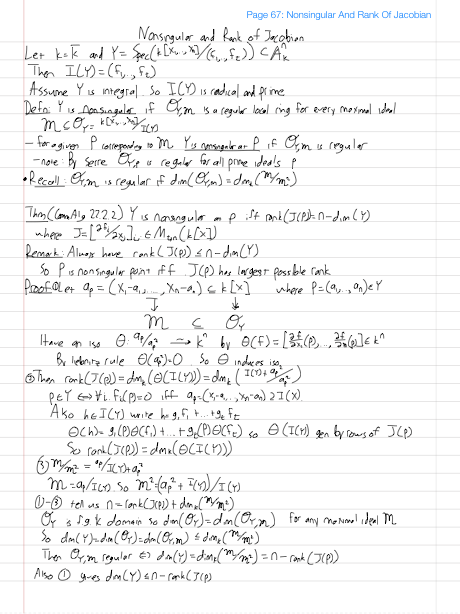 Page 67: Nonsingular And Rank Of Jacobian
Nonsingular and Rank of Jacobian
Let k=k̄ and Y=Spec(k[x₁,..,xₙ]/(f₁,..,f_t)) ⊂ Aⁿ_k
Then I(Y)=(f₁,..,f_t)
Assume Y is integral. So I(Y) is radical and prime
Defn: Y is nonsingular if O_{Y,m} is a regular local ring for every maximal ideal
m ⊆ O_Y = k[x₁,..,xₙ]/I(Y)
- for a given P corresponding to m Y is nonsingular at P if O_{Y,m} is regular
- note: By Serre O_{Y,p} is regular for all prime ideals p
• Recall: O_{Y,m} is regular if dim(O_{Y,m})=dim_k(m/m²)
Thm (Com Alg 27.2.2) Y is nonsingular on p iff rank(J(p))=n-dim(Y)
where J=[∂fᵢ/∂xⱼ]ᵢ,ⱼ ∈ M_{txn}(k[x])
Remark: Always have rank(J(p)) ≤ n-dim(Y)
So P is nonsingular point iff J(p) has largest possible rank
Proof ① Let a_p = (x₁-a₁,...,xₙ-aₙ) ⊆ k[x] where P=(a₁,..,aₙ)∈Y
↓ ↓
m ⊆ O_Y
Have an iso θ: a_p/a_p² → kⁿ by θ(f)=[∂f/∂x₁(p),..,∂f/∂xₙ(p)]∈kⁿ
By leibnitz rule θ(a_p²)=0. So θ induces iso
② Then rank(J(p))=dim_k(θ(I(Y)))=dim_k(I(Y)+a_p²/a_p²)
p∈Y ⟺ ∀i fᵢ(p)=0 iff a_p=(x₁-a₁,..,xₙ-aₙ) ⊇ I(X)
Also h∈I(Y) write h=g₁f₁+..+g_t f_t
θ(h)=g₁(P)θ(f₁)+..+g_t(P)θ(f_t) so θ(I(Y)) gen by rows of J(p)
So rank(J(p))=dim_k(θ(I(Y)))
③ m/m² = a_p/I(Y)+a_p²
m=a_p/I(Y). So m²=(a_p²+I(Y))/I(Y)
①-③ tell us n=rank(J(p))+dim_k(m/m²)
O_Y is f.g. k domain so dim(O_Y)=dim(O_{Y,m}) for any maximal ideal m
So dim(Y)=dim(O_Y)=dim(O_{Y,m}) ≤ dim_k(m/m²)
Then O_{Y,m} regular ⟺ dim(Y)=dim_k(m/m²)=n-rank(J(p))
Also ① gives dim(Y)≤n-rank(J(p))